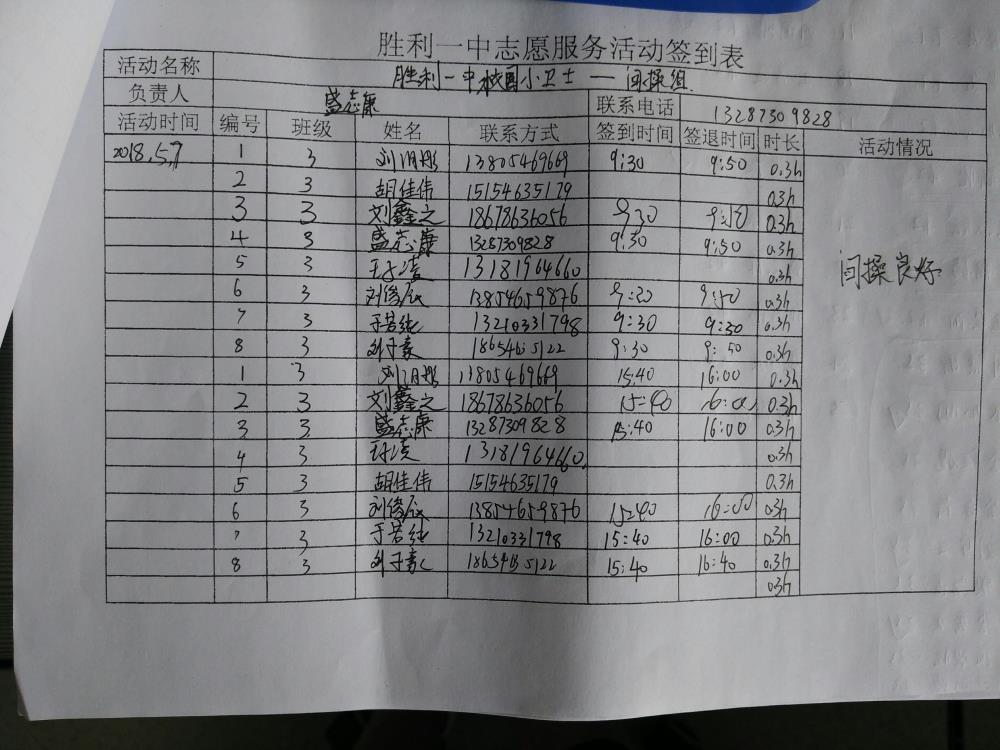 胜利一中志愿服务活动签到表
活动名称 胜利一中校园小卫士 — 间操组
负责人 盛志康 联系电话 13287309828
活动时间 编号 班级 姓名 联系方式 签到时间 签退时间 时长 活动情况
2018.5.7 1 3 刘明彤 13805469669 9:30 9:50 0.3h
2 3 胡佳伟 15154635179 0.3h
3 3 刘鑫之 18678636056 9:30 9:50 0.3h
4 3 盛志康 13287309828 9:30 9:50 0.3h
5 3 13181964660 0.3h
间操良好
6 3 13854659876 9:20 9:50 0.3h
7 3 于若纯 13210331798 9:30 9:50 0.3h
8 3 刘子豪 18654635122 9:30 9:50 0.3h
1 3 刘明彤 13805469669 15:40 16:00 0.3h
2 3 刘鑫之 18678636056 15:40 16:00 0.3h
3 3 盛志康 13287309828 15:40 16:00 0.3h
4 3 13181964660 0.3h
5 3 胡佳伟 15154635179 0.3h
6 3 13854659876 15:40 16:00 0.3h
7 3 于若纯 13210331798 15:40 16:00 0.3h
8 3 刘子豪 18654635122 15:40 16:40 0.3h
0.3h